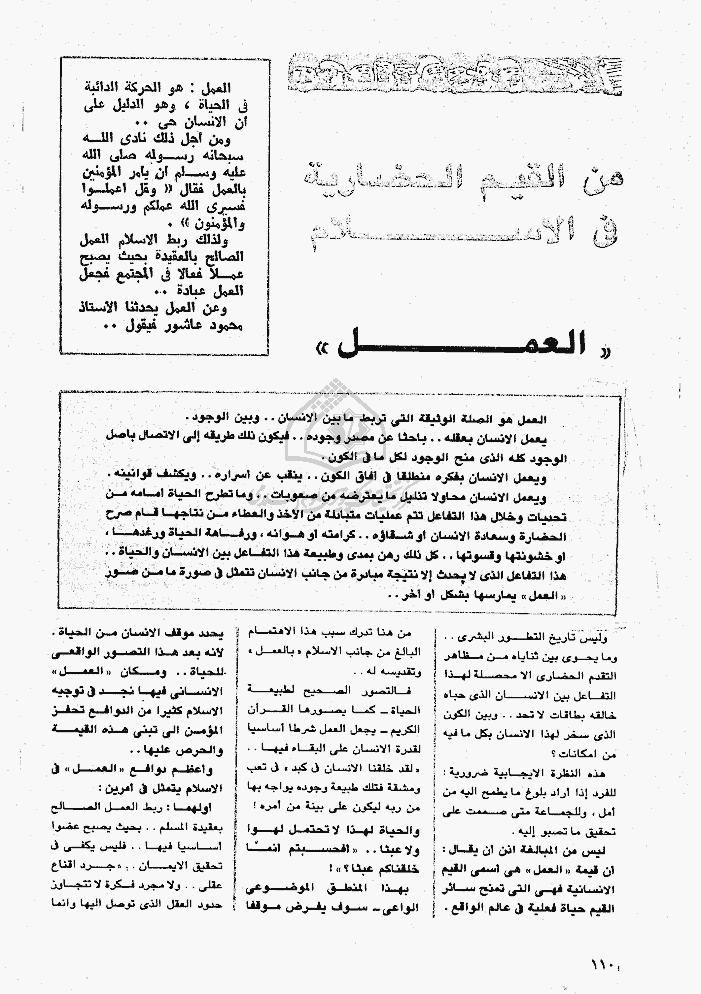 من القيم الحضارية
فى الاســـــلام
« العمـــــــل »
العمل : هو الحركة الدائبة
فى الحياة ، وهو الدليل على
أن الانسان حى ..
ومن أجل ذلك نادى اللــه
سبحانه رسـوله صلى الله
عليه وسـلم أن يأمر المؤمنين
بالعمل فقال « وقل اعملـوا
فسيرى الله عملكم ورسـوله
والمؤمنون » .
ولذلك ربط الاسلام العمل
الصالح بالعقيدة بحيث يصبح
عمـلا فعالا فى المجتمع فجعل
العمل عبادة ..
وعن العمل يحدثنا الأستاذ
محمود عاشور فيقول ..
العمل هو الصلة الوثيقة التى تربط ما بين الانسان .. وبين الوجود .
يعمل الانسان بعقله .. باحثا عن مصدر وجوده .. فيكون ذلك طريقه إلى الاتصال بأصل
الوجود كله الذى منح الوجود لكل ما فى الكون .
ويعمل الانسان بفكره منطلقا فى آفاق الكون .. ينقب عن أسراره .. ويكشف قوانينه .
ويعمل الانسان محاولا تذليل ما يعترضه من صعوبات .. وما تطرح الحياة أمامه مـن
تحديات وخلال هذا التفاعل تتم عمليات متبادلة من الأخذ والعطاء مـن نتاجها قـام صرح
الحضارة وسعادة الانسان أو شـقاؤه .. كرامته أو هـوانه ، ورفـاهة الحياة ورغدهـا ،
أو خشونتها وقسوتها .. كل ذلك رهن بمدى وطبيعة هذا التفاعل بين الانسان والحياة ..
هذا التفاعل الذى لا يحدث إلا نتيجة مبادرة من جانب الانسان تتمثل فى صورة ما مـن صـور
« العمل » يمارسها بشكل أو آخر ..
وليس تاريخ التطـور البشرى ..
وما يحوى بين ثناياه مـن مظاهر
التقدم الحضارى الا محصلة لهـذا
التفاعل بين الانسـان الذى حباه
خالقه بطاقات لا تحد .. وبين الكون
الذى سخر لهذا الانسان بكل ما فيه
من امكانات ؟
هذه النظرة الايجابية ضرورية :
للفرد إذا أراد بلوغ ما يطمح اليه من
أمل ، وللجماعة متى صـممت على
تحقيق ما تصبو إليه .
ليس من المبالغة اذن أن يقـال :
أن قيمة « العمل » هى أسمى القيم
الانسانية فهـى التى تمنح سـائر
القيم حياة فعلية فى عالم الواقع .
من هنا ندرك سبب هذا الاهتمـام
البالغ من جانب الاسلام « بالعمل »
وتقديسه له ..
فـالتصور الصـحيح لطبيعـة
الحياة ـ كمـا يصورها القـرآن
الكريم ـ يجعل العمل شرطا أساسيا
لقدرة الانسان على البقـاء فيهـا ..
« لقد خلقنا الانسان فى كبد » فى تعب
ومشقة فتلك طبيعة وجوده يواجه بها
من ربه ليكون على بينة من أمره !
والحياة لهـذا لا تحتمـل لهـوا
ولا عبثا .. « أفحسـبتم أنمـا
خلقناكم عبثا ؟ » !
بهـذا المنطق الموضـوعى
الواعى ـ سوف يفـرض موقفـا
يحدد موقف الانسان مـن الحياة .
لأنه بعد هـذا التصور الواقعـى
للحياة .. ومـكان « العمـل »
الانسـانى فيهـا نجـد فى توجيه
الاسلام كثيرا من الدوافع تحفـز
المؤمن إلى تبنى هـذه القيمـة
والحرص عليها ..
وأعظـم دوافع « العمـل » فى
الاسلام يتمثل فى أمرين :
أولهمـا : ربط العمـل الصـالح
بعقيدة المسلم .. بحيث يصبح عضوا
أساسيا فيهـا .. فليس يكفى فى
تحقيق الايمـان .. مجـرد اقناع
عقلى .. ولا مجرد فـكرة لا تتجـاوز
حدود العقل الذى توصل اليها وانما
١١٠